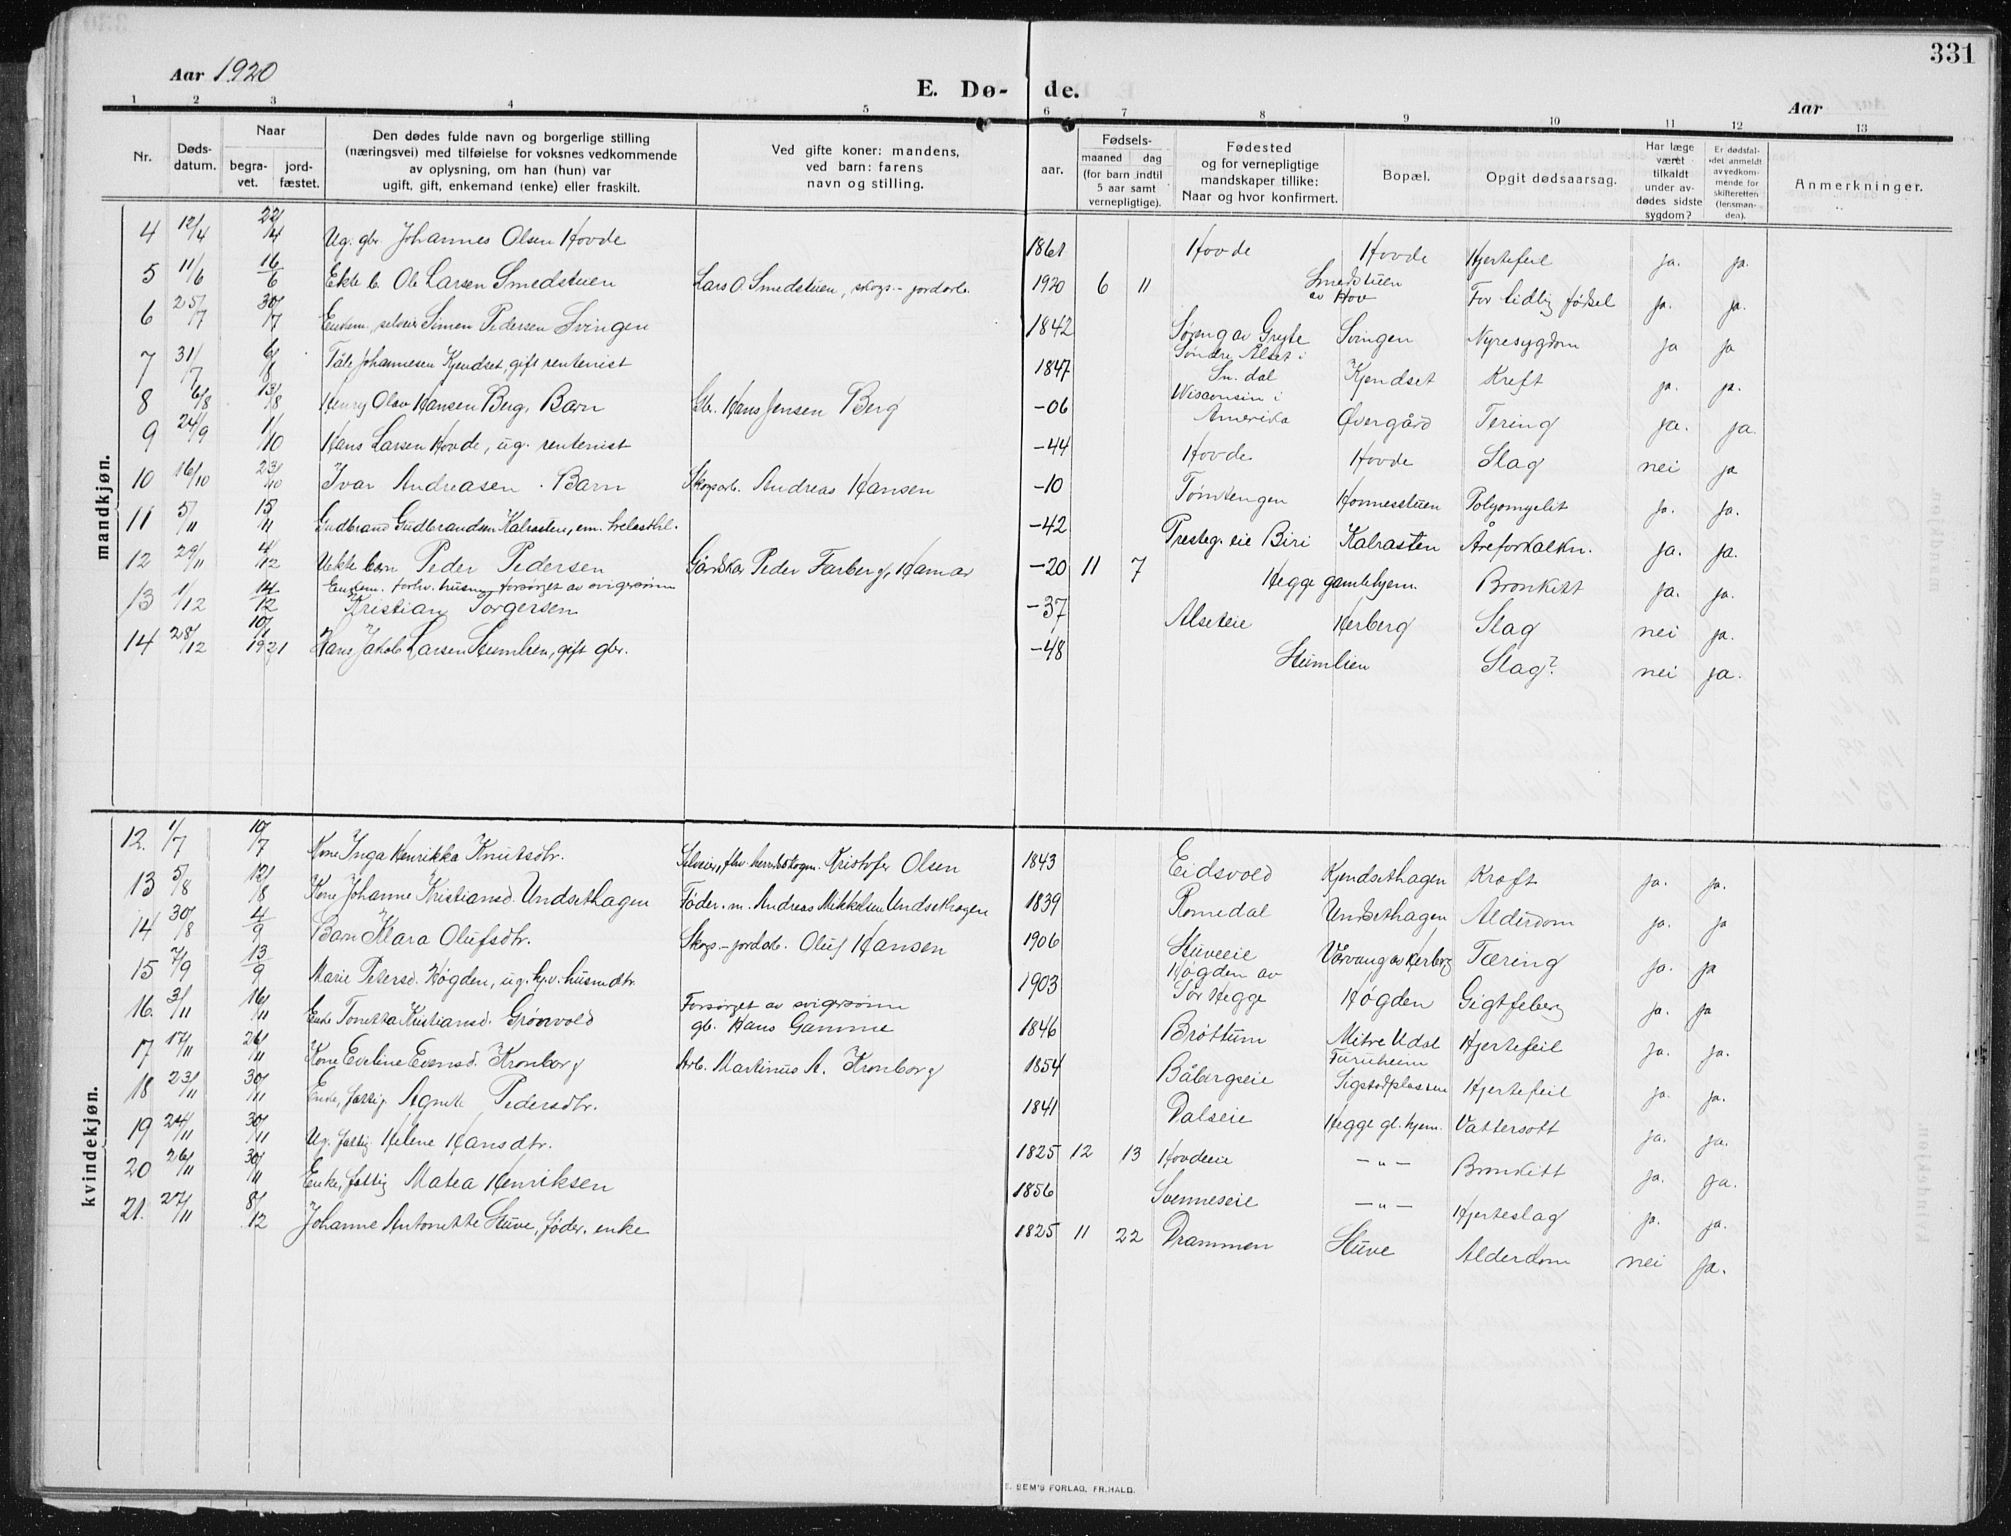 331
Aar 1920
E. Dø- de.
Aar
1 2 3 4 5 6 7 8 9 10 11 12 13
Nr.
Dødsdatum.
Naar
begravet.
jordfæstet.
Den dødes fulde navn og borgerlige stilling
(næringsvei) med tilføielse for voksnes vedkommende
av oplysning, om han (hun) var
ugift, gift, enkemand (enke) eller fraskilt.
Ved gifte koner: mandens,
ved barn: farens
navn og stilling.
Fødsels-
aar.
maaned dag
(for barn indtil
5 aar samt
vernepligtige).
Fødested
og for vernepligtige
mandskaper tillike:
Naar og hvor konfirmert.
Bopæl.
Opgit dødsaarsag.
Har læge
været
tilkaldt
under avdødes sidste
sygdom?
Er dødsfaldet anmeldt
av vedkommende for
skifteretten
(lensmanden).
Anmerkninger.
mandkjøn.
4 12/4 22/4 Ug. gbr. Johannes Olsen Hovde 1861 Hovde Hovde Hjertefeil ja. ja.
5 11/6 16/6 Ekte b. Ole Larsen Smedstuen Lars O. Smedstuen, skogs- jordarb. 1920 6 11 Smedstuen av Hov For tidlig fødsel ja. ja.
6 25/7 30/7 Enkem. selveier Simen Pedersen Svingen 1842 Søeng av Grøte Svingen Nyresygdom ja ja
7 31/7 6/8 Tåle Johannesen Kjendset, gift rentenist 1847 Søndre Alset i Sn. dal Kjendset Kreft ja. ja.
8 6/8 13/8 Henry Olav Hansen Berg, Barn Gbr. Hans Jensen Berg -06 Wisconsin i Amerika Øvergård Tering ja. ja.
9 24/9 1/10 Hans Larsen Hovde, ug. rentenist -44 Hovde Hovde Slag nei ja
10 16/10 23/10 Ivar Andreasen. Barn Skogsarb. Andreas Hansen -10 Tømtengen Honnesstuen Polyomyelit ja. ja.
11 5/11 15/11 Gudbrand Gudbrandsen Kalrasten, em. trelasthl. -42 Presteg. eie Biri Kalrasten Åreforkalkn. ja. ja.
12 29/11 4/12 Uekte barn Peder Pedersen Gårdskar Peder Farberg, Hamar -20 11 7 Hegge gamlehjem. Bronkitt ja. ja.
13 1/12 14/12 Enkem. forhv. husm. forsørget av svigersønn Kristian Torgersen -37 Alseteie Herberg Slag nei ja.
14 28/12 10/1 1921 Hans Jakob Larsen Stumlien, gift gbr. -48 Stumlien Slag? nei ja.
kvindekjøn.
12. 1/7 10/7 Kone Inga Henrikka Knutsdtr. Selveier, fhv. herredskogm. Kristofer Olsen 1843 Eidsvold Kjendsethagen Kræft ja. ja.
13 5/8 12/8 Kone Johanne Kristiansd. Undsethagen Føder. m. Andreas Mikkelsen Undsethagen 1839 Romedal Undsethagen Alderdom ja. ja
14 30/8 4/9 Barn Klara Olufsdtr. Skogs- jordarb. Oluf Hansen 1906 Stuveeie Vårvang av Herberg Tæring ja. ja
15 7/9 13/9 Marie Petersd. Høgden, ug. hjv. husmdtr. 1903 Høgden av Sør Hegge Høgden Gigtfeber ja. ja
16. 3/11 16/11 Enke Tonetta Kristiansd. Grønvold Forsørget av svigersønn gb. Hans Gamme 1846 Brøttum Mitre Udal Hjertefeil ja. ja.
17 17/11 26/11 Kone Eveline Evensd. Kronborg Arb. Martinus A. Kronborg 1854 Båbergseie Furuheim Sigstadplassen Hjertefeil ja. ja.
18 23/11 30/11 Enke, fattig Agnete Pedersdtr. 1841 Dalseie Hegge gl. hjem. Vattersott ja. ja.
19 24/11 30/11 Ug. fattig Helene Hansdtr. 1825 12 13 Hovdeeie -"- Bronkitt ja. ja.
20 26/11 30/11 Enke, fattig Matea Henriksen 1856 Svenneseie -"- Hjerteslag ja. ja.
21. 27/11 8/12 Johanne Antonette Stuve, føder. enke 1825 11 22 Drammen Stuve Alderdom nei ja.
E. SEM'S FORLAG, FR.HALD.